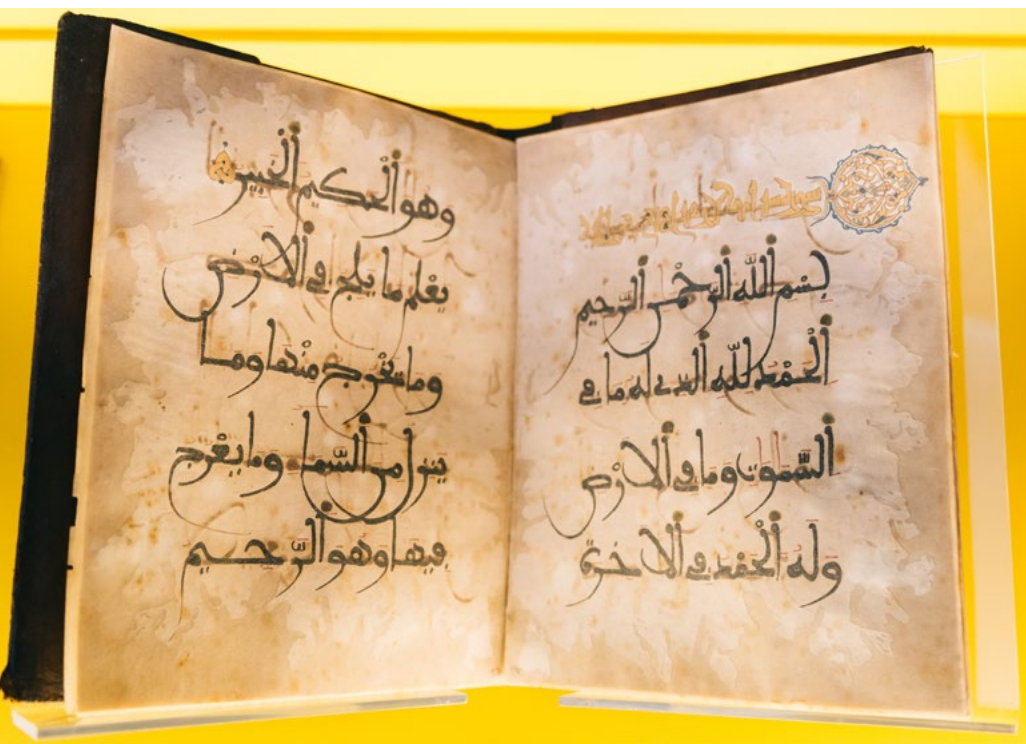 بِسْمِ اللّٰهِ الرَّحْمٰنِ الرَّحِيمِ
الْحَمْدُ لِلّٰهِ الَّذِي لَهُ مَا فِي
السَّمٰوٰتِ وَمَا فِي الْاَرْضِ
وَلَهُ الْحَمْدُ فِي الْاٰخِرَةِ
وهو الْحكيم الْخبير
يعْلم ما يلج في الْارْض
وما يخْرج منْها وما
ينزل من السّماء وما يعْرج
فيها وهو الرّحيم